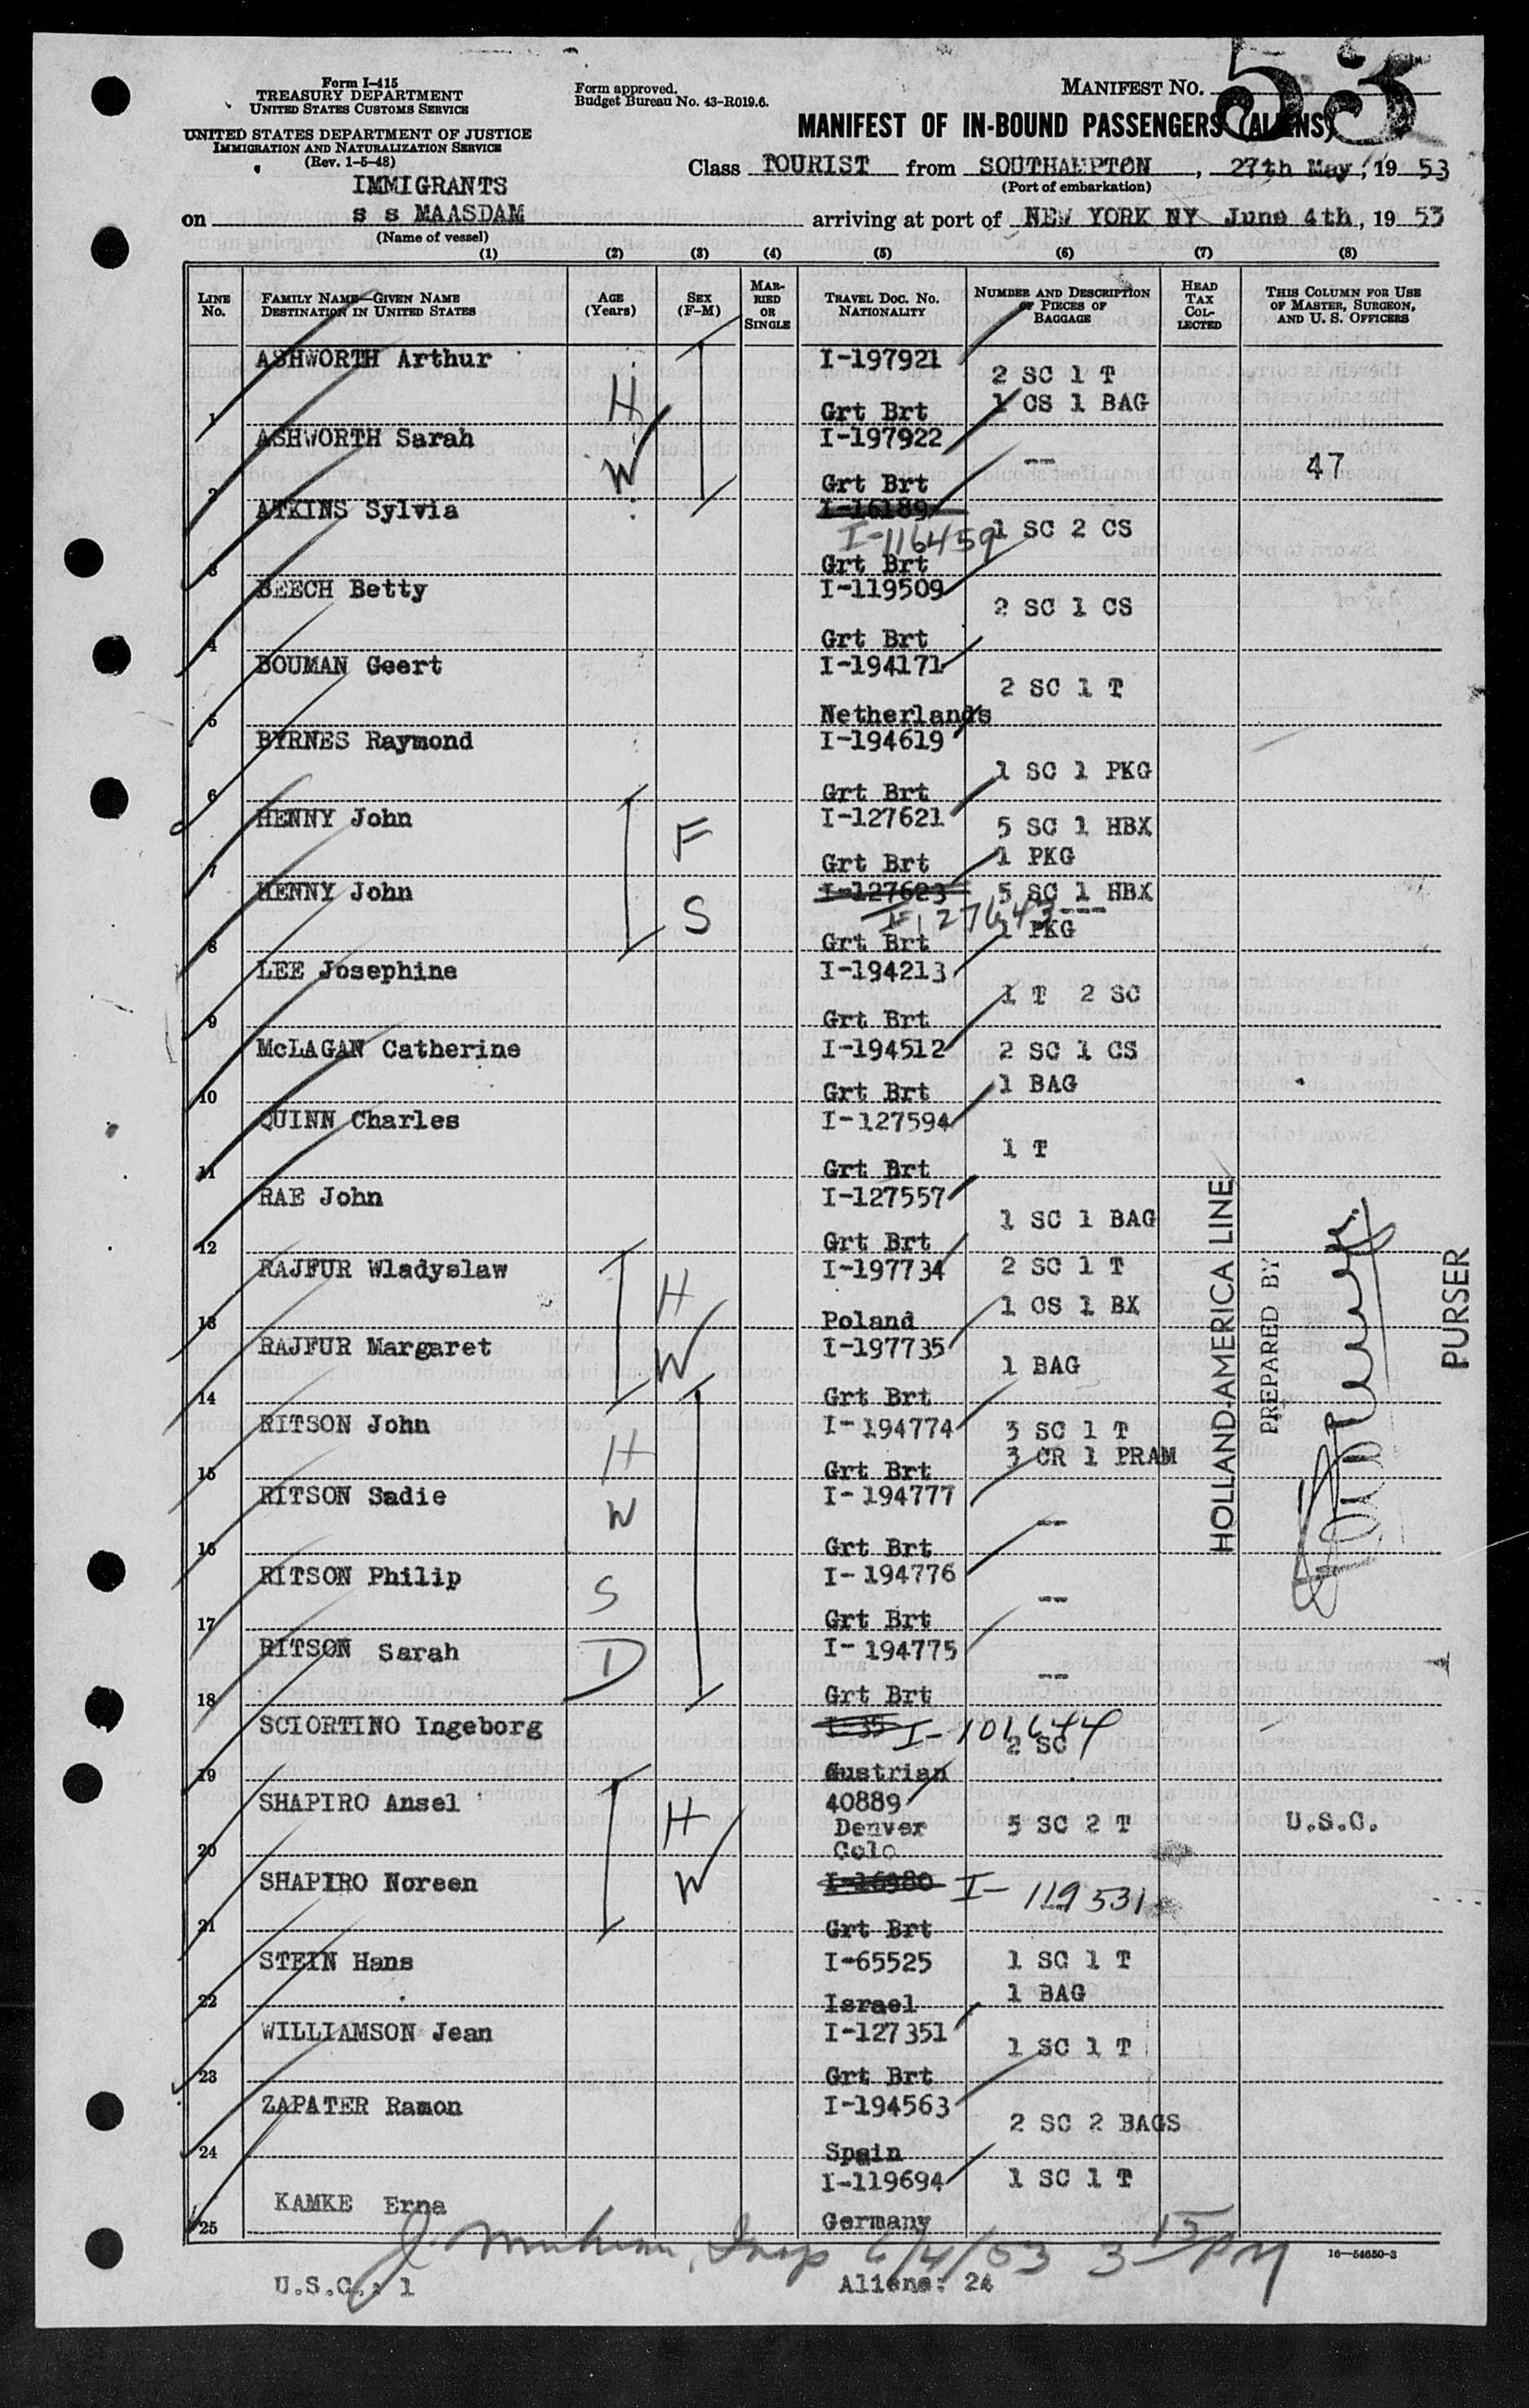 Form I-415
TREASURY DEPARTMENT
UNITED STATES CUSTOMS SERVICE
UNITED STATES DEPARTMENT OF JUSTICE
IMMIGRATION AND NATURALIZATION SERVICE
(Rev. 1-5-48)
Form approved.
Budget Bureau No. 43-R019.6.
MANIFEST NO. 53
MANIFEST OF IN-BOUND PASSENGERS (ALIENS)
Class TOURIST from SOUTHAMPTON, 27th May, 19 53
(Port of embarkation)
IMMIGRANTS
on s s MAASDAM arriving at port of NEW YORK NY June 4th, 19 53
(Name of vessel)
(1) (2) (3) (4) (5) (6) (7) (8)
LINE No. FAMILY NAME—GIVEN NAME DESTINATION IN UNITED STATES AGE (Years) SEX (F-M) MARRIED OR SINGLE TRAVEL DOC. NO. NATIONALITY NUMBER AND DESCRIPTION OF PIECES OF BAGGAGE HEAD TAX COLLECTED THIS COLUMN FOR USE OF MASTER, SURGEON, AND U. S. OFFICERS
1 ASHWORTH Arthur H I-197921 Grt Brt 2 SC 1 T 1 CS 1 BAG
2 ASHWORTH Sarah W I-197922 Grt Brt -- 47
3 ATKINS Sylvia I-16189 I-116459 Grt Brt 1 SC 2 CS
4 BEECH Betty I-119509 Grt Brt 2 SC 1 CS
5 BOUMAN Geert I-194171 Netherlands 2 SC 1 T
6 BYRNES Raymond I-194619 Grt Brt 1 SC 1 PKG
7 HENNY John F I-127621 Grt Brt 5 SC 1 HBX 1 PKG
8 HENNY John S I-127623 I-127643 Grt Brt 5 SC 1 HBX --- 1 PKG
9 LEE Josephine I-194213 Grt Brt 1 T 2 SC
10 McLAGAN Catherine I-194512 Grt Brt 2 SC 1 CS 1 BAG
11 QUINN Charles I-127594 Grt Brt 1 T
12 RAE John I-127557 Grt Brt 1 SC 1 BAG
13 RAJFUR Wladyslaw H I-197734 Poland 2 SC 1 T 1 CS 1 BX
14 RAJFUR Margaret W I-197735 Grt Brt 1 BAG
15 RITSON John H I-194774 Grt Brt 3 SC 1 T 3 CR 1 PRAM
16 RITSON Sadie W I-194777 Grt Brt --
17 RITSON Philip S I-194776 Grt Brt --
18 RITSON Sarah D I-194775 Grt Brt --
19 SCIORTINO Ingeborg I-101644 Gustrian 2 SC
20 SHAPIRO Ansel H 40889 Denver Colo 5 SC 2 T U.S.C.
21 SHAPIRO Noreen W I-16980 I-119531 Grt Brt
22 STEIN Hans I-65525 Israel 1 SC 1 T 1 BAG
23 WILLIAMSON Jean I-127351 Grt Brt 1 SC 1 T
24 ZAPATER Ramon I-194563 Spain 2 SC 2 BAGS
25 KAMKE Erna I-119694 Germany 1 SC 1 T
HOLLAND-AMERICA LINE
PREPARED BY
PURSER
Insp 6/4/53 3 15 PM
16—54650-3
U.S.C.: 1
Aliens: 24